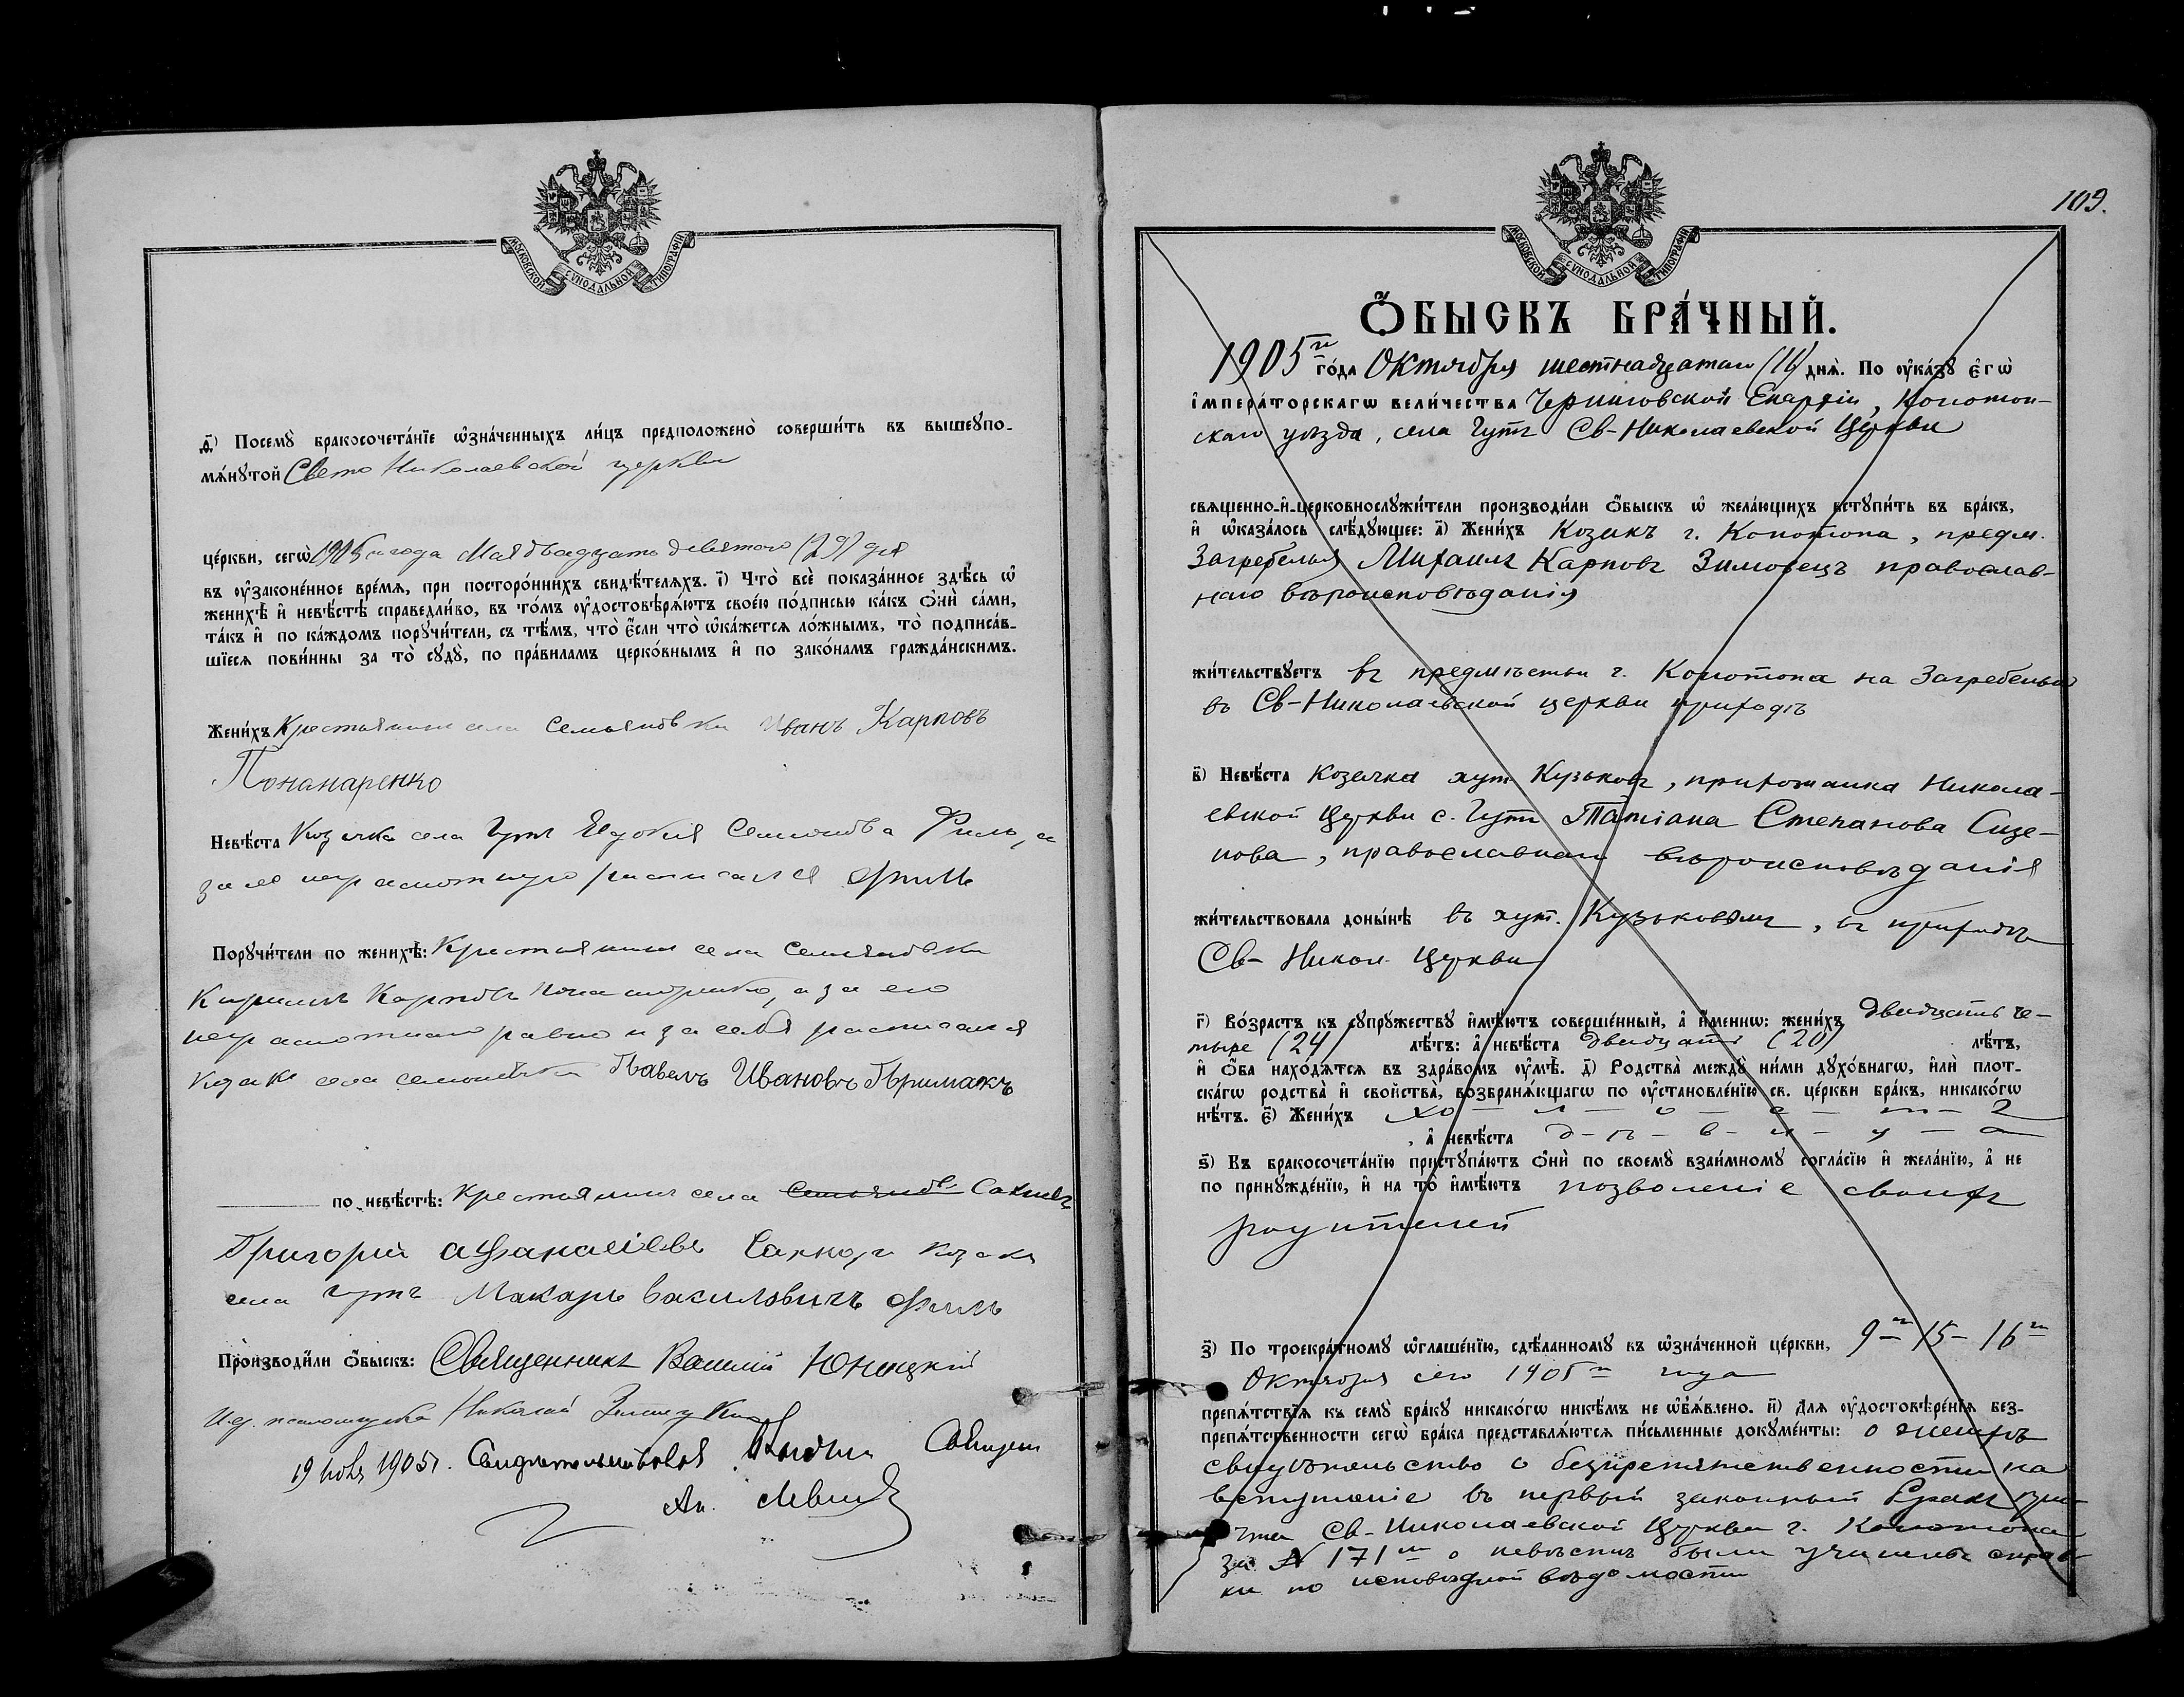 МОСКОВСКОЙ СѴНОДАЛЬНОЙ ТИПОГРАФІИ
Посемꙋ̀ бракосочета́нїе ѡ҆зна́ченныхъ ли́цъ предположено̀ соверши́ть въ вышеꙋпо-
мѧ́нꙋтой Свето Николаевской церкви
це́ркви, сегѡ̀ 1905 года Мая двадцать девятого (29) дня
въ ᲂу҆зако́ненное вре́мѧ, при посторо́ннихъ свидѣ́телѧхъ. і҃) Что̀ всѐ пока́занное здѣ́сь ѡ҆
женихѣ̀ и҆ невѣ́стѣ справедли́во, въ то́мъ ᲂу҆достовѣрѧ́ютъ свое́ю по́дписью ка́къ ѻ҆нѝ са́ми,
та́къ и҆ по ка́ждомъ порꙋчи́тели, съ тѣ́мъ, что̀ є҆́сли что̀ ѡ҆ка́жетсѧ ло́жнымъ, то̀ подписа́в-
шїесѧ пови́нны за то̀ сꙋдꙋ̀, по пра́виламъ церко́внымъ и҆ по зако́намъ гражда́нскимъ.
Жени́хъ Крестьянинъ села Семьяновки Иванъ Карповъ
Понамаренко
Невѣ́ста Козачка села Гутъ Евдокія Филь, а
за ее неграмотную росписался Филь
Порꙋчи́тели по женихѣ̀: Крестьянинъ села Семьяновки
Кириллъ Карповъ а за его
неграмотнаго равно и за себя росписался
Козакъ села Павелъ Ивановъ Примакъ
по невѣ́стѣ: Крестьянинъ села
Григорій Афанасіевъ козакъ
села Гутъ Макаръ Василовичъ Филь
Производи́ли ѻ҆́быскъ: Священникъ Василій Юницкій
И.д. псаломщика Николай
19 1905 г. Свидетельствовалъ
109.
МОСКОВСКОЙ СѴНОДАЛЬНОЙ ТИПОГРАФІИ
Ѻ҆́БЫСКЪ БРА́ЧНЫЙ.
1905 го го́да Октября шестнадцатаго (16) днѧ̀. По ᲂу҆ка́зꙋ є҆гѡ̀
і҆мпера́торскагѡ вели́чества Черниговской Епархіи, Конотоп-
скаго уѣзда, села Гутъ Св-Николаевской Церкви
свѧщенно-и҆-церковнослꙋжи́тели производи́ли ѻ҆́быскъ ѡ҆ жела́ющихъ встꙋпи́ть въ бра́къ,
и҆ ѡ҆каза́лось слѣ́дꙋющее: а҃) Жени́хъ Козакъ г. Конотопа, предм.
Загребелья Михаилъ Карповъ Зимовецъ православ-
наго вѣроисповѣданія
жи́тельствꙋетъ въ предмѣстьи г. Конотопа на Загребельи
въ Св-Николаевской церкви приходѣ
в҃) Невѣ́ста Козачка хут. Кузьковъ, прихожанка Никола-
евской Церкви с. Гутъ Татіана Степанова Сизе-
нова, православнаго вѣроисповѣданія
жи́тельствовала доны́нѣ въ хут. Кузьковомъ, въ приходѣ
Св- Никол. Церкви
г҃) Во́зрастъ къ сꙋпрꙋ́жествꙋ и҆мѣ́ютъ соверше́нный, а҆ и҆́меннѡ: жени́хъ двадцать че-
тыре (24) лѣ́тъ: а҆ невѣ́ста двадцать (20) лѣ́тъ,
и҆ ѻ҆́ба нахо́дѧтсѧ въ здра́вомъ ᲂу҆мѣ̀. д҃) Родства̀ междꙋ̀ ни́ми дꙋхо́внагѡ, и҆лѝ плот-
ска́гѡ родства̀ и҆ свойства̀, возбранѧ́ющагѡ по ᲂу҆становле́нїю св. це́ркви бра́къ, никако́гѡ
нѣ́тъ. є҃) Жени́хъ хо-л-о-с-т-ъ
, а҆ невѣ́ста д-ѣ-в-и-ц-а
ѕ҃) Къ бракосочета́нїю пристꙋпа́ютъ ѻ҆нѝ по своемꙋ̀ взаи́мномꙋ согла́сїю и҆ жела́нїю, а҆ не
по принꙋжде́нїю, и҆ на то̀ и҆мѣ́ютъ позволеніе своихъ
родителей
з҃) По троекра́тномꙋ ѡ҆глаше́нїю, сдѣ́ланномꙋ въ ѡ҆зна́ченной це́ркви, 9 го 15 - 16 го
Октября сего 1905 го года
препѧ́тствїѧ къ семꙋ̀ бра́кꙋ никако́гѡ никѣ́мъ не ѡ҆б̾ѧ́влено. и҃) Длѧ ᲂу҆достовѣре́нїѧ без-
препѧ́тственности сегѡ̀ бра́ка представлѧ́ютсѧ пи́сьменные докꙋме́нты: о женихѣ
свидѣтельство о безпрепятственности на
вступленіе въ первый законный бракъ при-
чта Св-Николаевской Церкви г. Конотопа
за № 171 м о невѣстѣ были учинены справ-
ки по исповѣдной вѣдомости